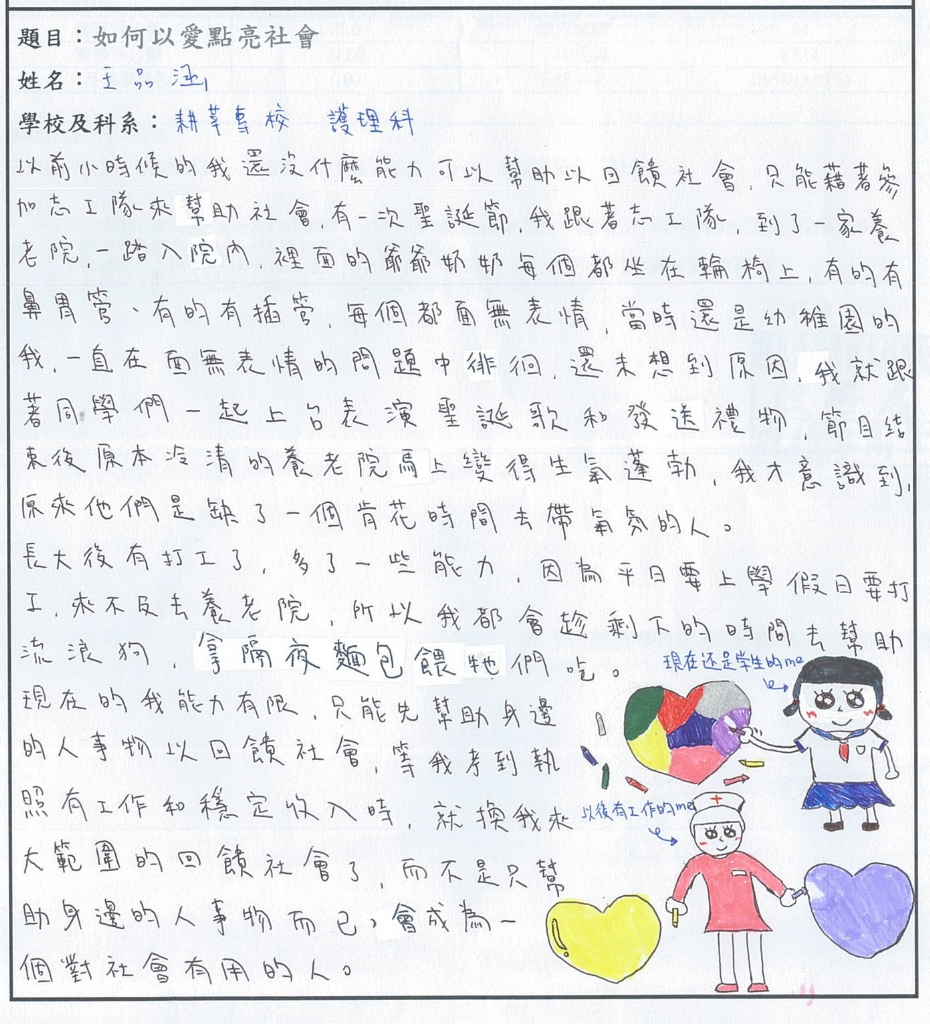 題目：如何以愛點亮社會
姓名：王品涵
學校及科系：耕莘專校 護理科
以前小時候的我還沒什麼能力可以幫助以回饋社會，只能藉著參
加志工隊來幫助社會，有一次聖誕節，我跟著志工隊，到了一家養
老院，一踏入院內，裡面的爺爺奶奶每個都坐在輪椅上，有的有
鼻胃管、有的有插管，每個都面無表情，當時還是幼稚園的
我，一直在面無表情的問題中徘徊，還未想到原因，我就跟
著同學們一起上台表演聖誕歌和發送禮物，節目結
束後原本冷清的養老院馬上變得生氣蓬勃，我才意識到，
原來他們是缺了一個肯花時間去帶氣氛的人。
長大後有打工了，多了一些能力，因為平日要上學假日要打
工，來不及去養老院，所以我都會趁剩下的時間去幫助
流浪狗，拿隔夜麵包餵牠們吃。
現在还是學生的me
現在的我能力有限，只能先幫助身邊
的人事物以回饋社會，等我考到執
照有工作和穩定收入時，就換我來
以後有工作的me
大範圍的回饋社會了，而不是只幫
助身邊的人事物而已，會成為一
個對社會有用的人。